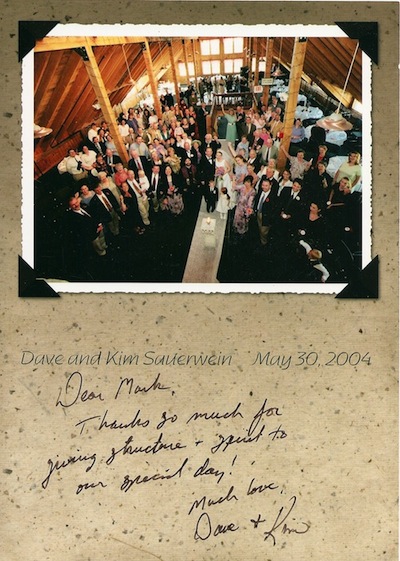 Dave and Kim Sauerwein May 30, 2004
Dear Mark,
Thanks so much for
giving structure + spirit to
our special day!
Much love,
Dave + Kim